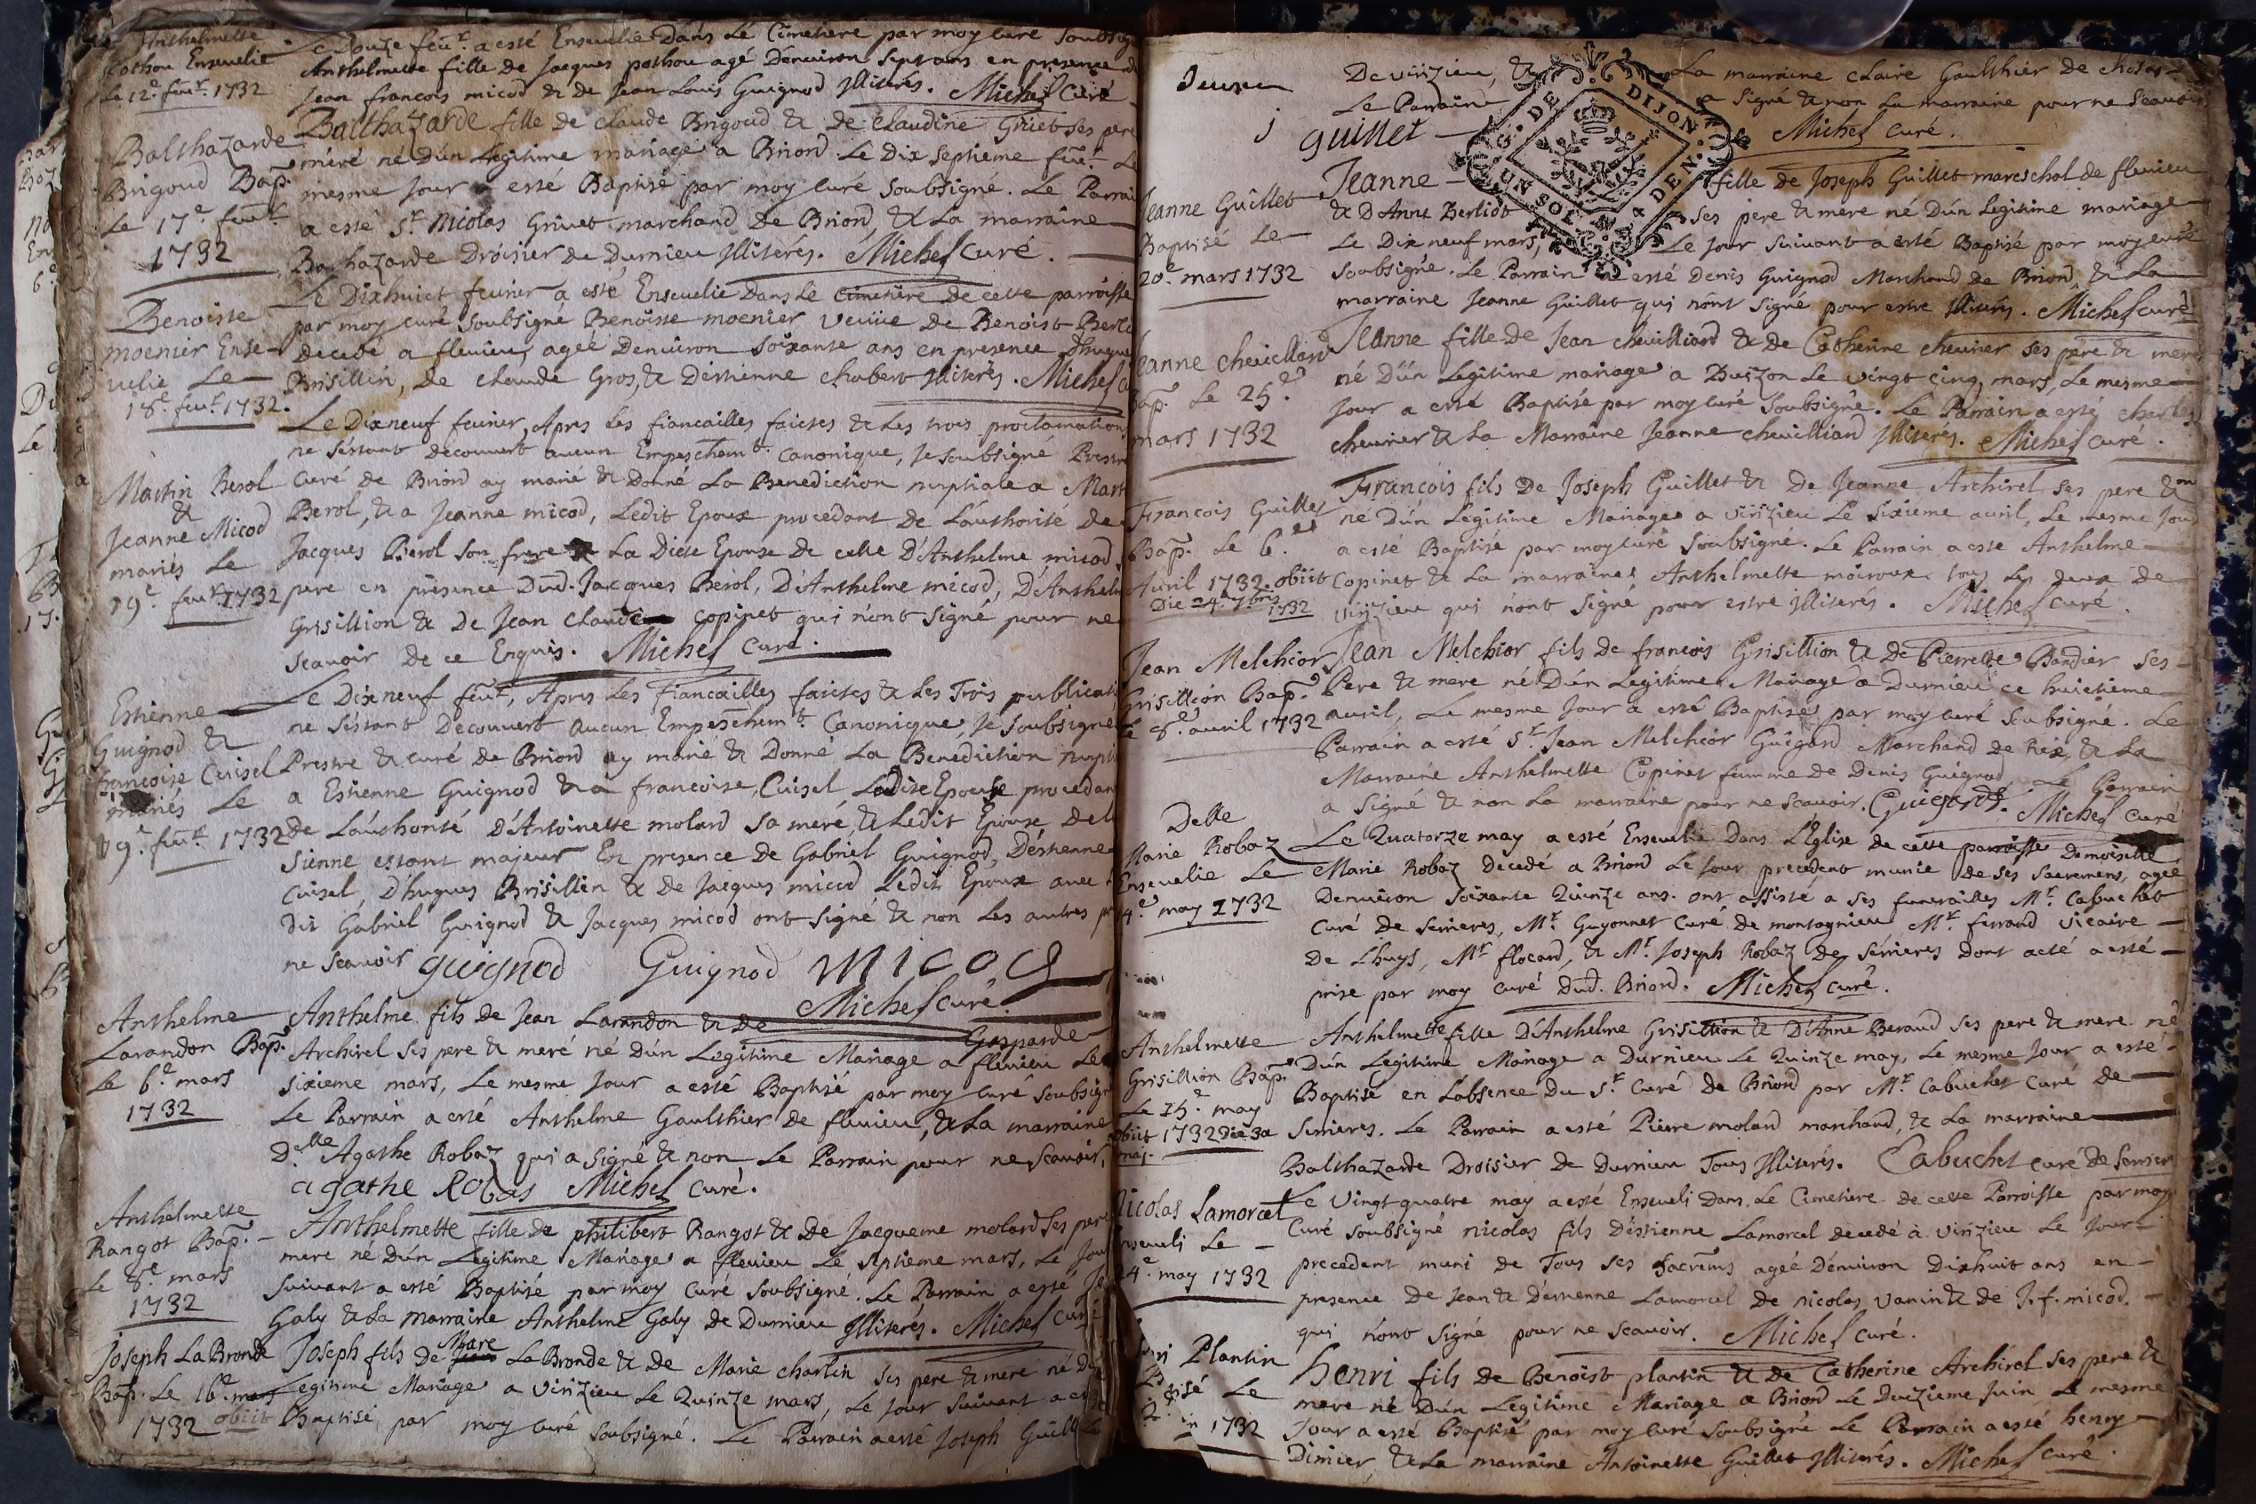 Anthelmette
pothou Enseuelie
Le 12e feur. 1732
Le Douze feur. a esté Enseuelie Dans Le Cimetiere par moy curé soubsigné
Anthelmette fille de Jacques pothou agé Denuiron Sept ans en presence de
Jean francois micod & de Jean Louis Guignod Jlliterés. Michel Curé
Balthazarde
Brigoud Bap.
Le 17e feur.
1732
Balthazarde fille de claude Brigoud & de claudine Griuet ses pere
mére né D'ún Legitime mariage a Briord Le Dix septieme feur. Le
mesme Jour a esté Baptisé par moy curé soubsigné. Le Parrain
a esté Sr. Nicolas Griuet marchand De Briord, & La marraine
Balthazarde Droisier de Durnieu Jlliterés. Michel Curé.
Benoiste
moenier Ense-
uelie Le
18e. feur. 1732.
Le Dixhuict feurier a esté Enseuelie Dans Le Cimetiere de cette parroisse
par moy curé soubsigné Benoiste moenier veüue de Benoist
Decedé a fleuieu, ageé Denuiron soixante ans en presence d'hugue
Brisillin, de claude Gros, & D'estienne chabert Jlliterés. Michel
Martin Berol
&
Jeanne Micod
mariés Le
19e feur. 1732
Le Dixneuf feurier, Apres Les fiancailles faictes & Les trois proclamations
ne s'estant decouuert aucun Empeschemt. canonique, Je soubsigné Prestre
Curé de Briord ay marié & Donné La Benediction nuptiale a Mart
Berol, & a Jeanne micod, Ledit Epoux procedant de L'authorité de
Jacques Berol son frere La Dicte Epouse de celle D'Anthelme micod
pere en presence Dud. Jacques Berol, D'Anthelme micod, D'Anthelme
Grisillion & De Jean claude copinet qui n'ont signé pour ne
scauoir de ce Enquis. Michel Curé.
Estienne
Guignod &
francoise Cuisel
mariés Le
19e. feur. 1732
Le Dixneuf feur., Apres Les Fiancailles faictes & Les Trois publications
ne s'estant Decouuert aucun Empeschemt. Canonique, Je soubsigné
Prestre & curé de Briord ay marié & Donné La Benediction nupti
a Estienne Guignod & a francoise Cuisel, Ladite Epouse procedant
de L'authorité D'Antoinette molard sa meré, & Ledit Epoux De L
sienne estant majeur En presence de Gabriel Guignod, D'estienne
Cuisel, D'hugues Brisillin & de Jacques micod Ledit Epoux auec
dit Gabriel Guignod & Jacques micod ont signé & non Les autres pr
ne scauoir guignod Guignod MICOD
Michel curé.
Anthelme
Larandon Bap.
Le 6e. mars
1732
Anthelme fils de Jean Larandon & de Gasparde
Archirel ses pere & meré né D'ún Legitime Mariage a fleuieu Le
sixieme mars, Le mesme Jour a esté Baptisé par moy curé soubsigné
Le Parrain a esté Anthelme Gaulthier de fleuieu, & La marraine
Delle Agathe Robaz qui a signé & non Le Parrain pour ne scauoir,
agathe Robas Michel curé.
Anthelmette
Rangot Bap.
Le 8e. mars
1732
Anthelmette fille de philibert Rangot & de Jacqueme molard ses pere
mere né D'ún Legitime Mariage a fleuieu Le septieme mars, Le Jour
suiuant a esté Baptisé par moy Curé soubsigné. Le Parrain a esté
Galy & La marraine Anthelme Galy de Durnieu Jlliterés. Michel Curé
Joseph La Bronde
Bap. Le 16e. mars
1732 obiit
Joseph fils de Marc La Bronde & de Marie charlin ses pere & meré né D
Legitime Mariage a virizieu Le Quinze mars, Le Jour suiuant a esté
Baptisé par moy curé soubsigné. Le Parrain a esté Joseph Guillet
De virizieu, & La marraine claire Gaulthier de
Le Parrain a signé & non La marraine pour ne scauoir
J guillet Michel curé.
G. DE DIJON
UN SOL 4 DEN.
Jeanne Guillet
Baptisé Le
20e. mars 1732
Jeanne fille de Joseph Guillet mareschal de fleuieu
& D'Anne Berlict ses pere & mere né D'ún Legitime mariage
Le Dix neuf mars, Le Jour suiuant a esté Baptisé par moy curé
soubsigné. Le Parrain a esté Denis Guignod Marchand de Briord, & La
marraine Jeanne Guillet qui n'ont signé pour estre Jlliterés. Michel curé
Jeanne cheuilliard
Bap. Le 25e
mars 1732
Jeanne fille de Jean cheuilliard & de Catherine cheurier ses pere & mere
né D'ún Legitime mariage a Buizon Le vingt cinq mars, Le mesme
Jour a esté Baptisé par moy curé soubsigné. Le Parrain a esté charles
cheurier & La Marraine Jeanne cheuilliard Jlliterés. Michel curé.
Francois Guillet
Bap. Le 6e
Auril 1732. obiit
Die 24 7bris 1732
Francois fils De Joseph Guillet & De Jeanne Archirel ses pere &
né D'ún Legitime Mariage a virizieu Le sixieme auril, Le mesme Jour
a esté Baptisé par moy curé soubsigné. Le Parrain a esté Anthelme
Copinet & La marraine Anthelmette moiroux tous Les deux de
virizieu qui n'ont signé pour estre Jlliterés. Michel curé.
Jean Melchior
Grisillion Bap.
Le 8e. auril 1732
Jean Melchior fils de francois Grisillion & de Pierrette Bandier ses
Pere & mere né D'ún Legitime Mariage a Durnieu ce huictieme
auril, Le mesme Jour a esté Baptisé par moy curé soubsigné. Le
Parrain a esté Sr. Jean Melchior Guigard Marchand de Rix, & La
Marraine Anthelmette Copinet femme de Denis Guignod, Le Parrain
a signé & non La marraine pour ne scauoir. Guigard. Michel curé
Delle
Marie Robaz
Enseuelie Le
14e may 1732
Le Quatorze may a esté Enseuelie Dans L'Eglise de cette parroisse Demoiselle
Marie Robaz Decedé a Briord Le Jour precedent munie de ses sacremens, ageé
Denuiron soixante Quinze ans. ont assisté a ses funerailles Mr. Cabuchet
Curé de serrieres, Mr. Guyonnet Curé de montagnieu, Mr. ferrand vicaire
De Lhuys, Mr. flocard, & Mr. Joseph Robaz de serrieres Dont acte a esté
prise par moy curé Dud. Briord. Michel curé.
Anthelmette
Grisillion Bap.
Le 15e. may
obiit 1732 die 3a
Anthelmette fille D'Anthelme Grisillion & D'Anne Beraud ses pere & mere né
D'ún Legitime Mariage a Durnieu Le Quinze may, Le mesme Jour a esté
Baptisé en L'absence du Sr. Curé de Briord par Mr. Cabuchet Curé de
Serrieres. Le Parrain a esté Pierre molard marchand, & La marraine
Balthazarde Droisier de Durnieu Tous Jlliterés. Cabuchet curé de serrieres
Nicolas Lamorcel
Enseueli Le
24e. may 1732
Le Vingt quatre may a esté Enseueli dans Le Cimetiere de cette Parroisse par moy
Curé soubsigné nicolas fils D'estienne Lamorcel decedé à virizieu Le Jour
precedent muni de Tous ses sacrems ageé D'enuiron Dixhuit ans en
presence De Jean & D'estienne Lamorcel de nicolas vanin & de J. f. micod.
qui n'ont signé pour ne scauoir. Michel curé.
Henri Plantin
Baptisé Le
1732
Henri fils de Benoist plantin & de Catherine Archirel ses pere &
mere né D'ún Legitime Mariage a Briord Le Juin Le mesme
Jour a esté Baptisé par moy curé soubsigné Le Parrain a esté henry
Dimier, & La marraine Antoinette Guillet Jlliterés. Michel curé.